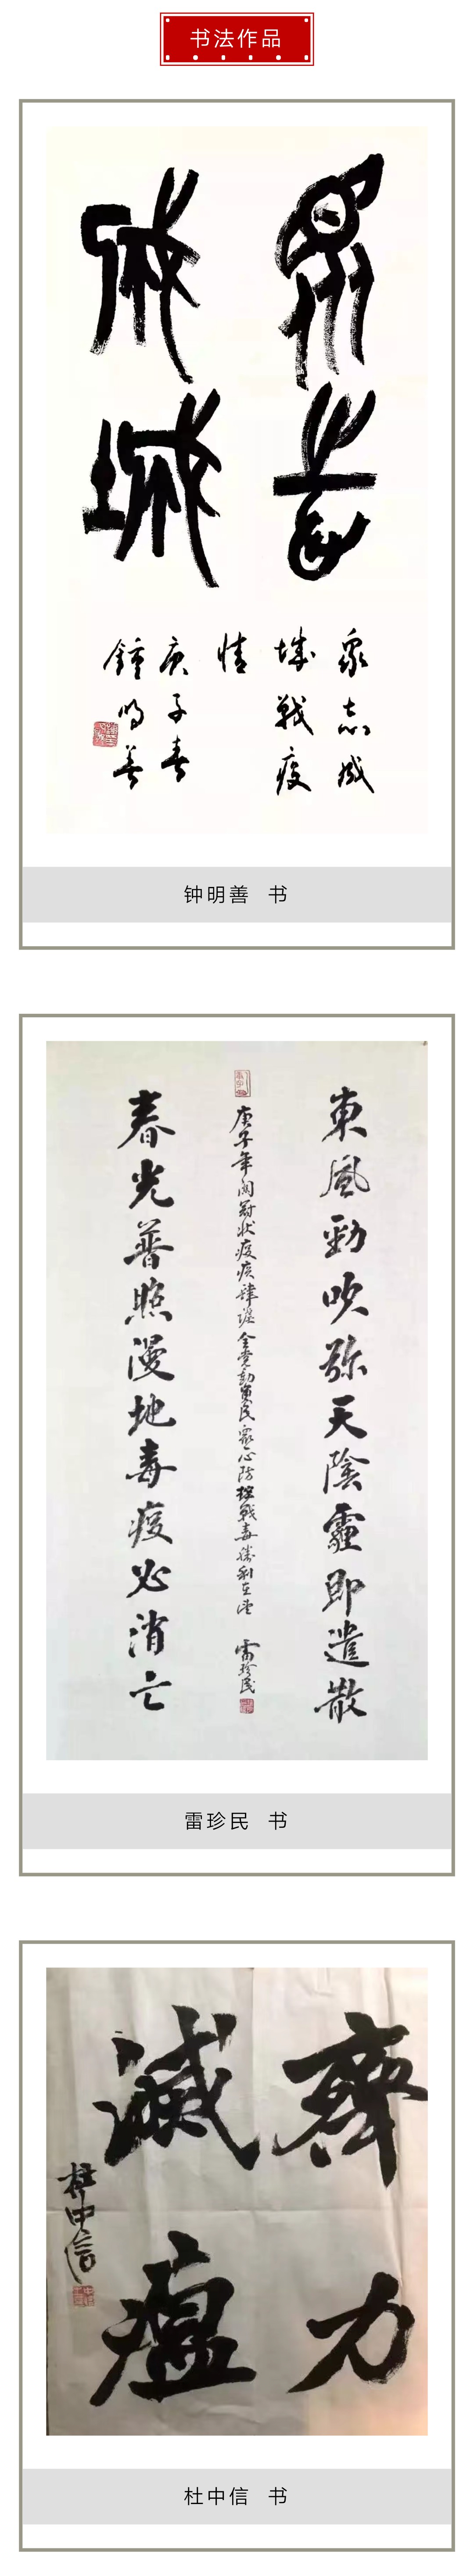 书法作品
眾志
成城
眾志成
城戰疫
情
庚子春
鍾明善
钟明善 书
東風勁吹弥天陰霾即遣散
庚子年関冠状疫疾肆虐全党動員民眾心防控戰毒勝利在望 雷珍民
春光普照漫地毒疫必消亡
雷珍民 书
齊力
滅瘟
杜中信
杜中信 书